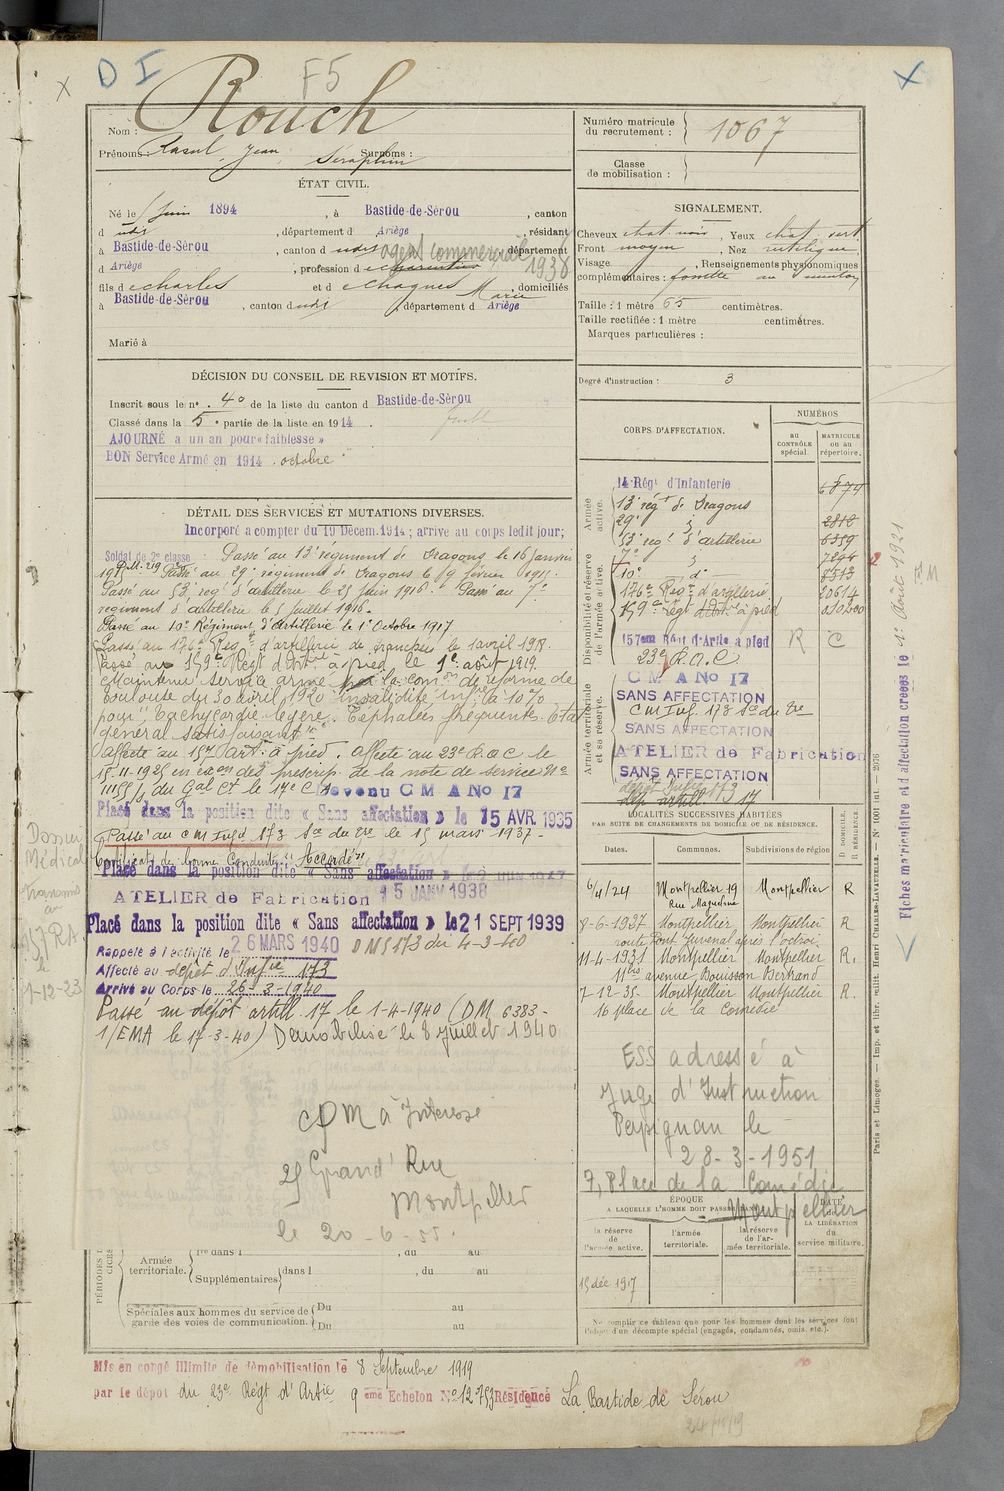 D I
F5
Nom : Rouch
Prénoms : Raoul Jean Seraphin Surnoms :
ÉTAT CIVIL.
Né le juin 1894, à Bastide-de-Sérou, canton
d udit, département d Ariège, résidant
à Bastide-de-Sérou, canton d udit, département
agent commercial 1938
d Ariège, profession de
fils de charles et de chagnes Marie, domiciliés
à Bastide-de-Sérou, canton dudit, département d Ariège
Marié à
DÉCISION DU CONSEIL DE REVISION ET MOTIFS.
Inscrit sous le n° 40 de la liste du canton d Bastide-de-Sérou
Classé dans la 5e partie de la liste en 1914.
AJOURNÉ a un an pour « faiblesse »
BON Service Armé en 1914 . octobre
DÉTAIL DES SERVICES ET MUTATIONS DIVERSES.
Incorporé a compter du 19 Décem. 1914 ; arrive au corps ledit jour;
Soldat de 2e classe
Passé au 13e régiment de Dragons le 16 Janvier
1915 Passé au 29e régiment de Dragons le 9 février 1915.
Passé au 53e reg. d'artillerie le 25 juin 1916. Passé au 7e
régiment d'artillerie le 5 juillet 1916.
Passé au 10e Régiment d'Artillerie le 1er Octobre 1917
Passé au 176e Régt d'artillerie de tranchées le 1 avril 1918.
Passé au 159e Régt d'Artie à pied le 1er août 1919.
Maintenu service armé par la comon de réforme de
Toulouse du 30 avril 1920 invalidité infre à 10 %
pour " Tachycardie légère. Céphalées fréquentes. Etat
général satisfaisant "
Affecté au 157 Art. à pied. Affecté au 23e R.a.c le
15-11-1925 en exon des prescrip. de la note de service No
du Gal Ct le 17e C A Devenu C M A No 17
Placé dans la position dite « Sans affectation » le 15 AVR. 1935
Passé au CM Infie 173 Son du Tre le 15 mars 1937 -
Certificat de bonne Conduite " Accordé "
Placé dans la position dite « Sans affectation »
ATELIER de Fabrication 15 JANV 1938
Placé dans la position dite « Sans affectation » le 21 SEPT 1939
Rappelé à l'activité le 26 MARS 1940 O MS 173 du 4-3-40
Affecté au dépôt d'Infie 173
Arrivé au Corps le 26-3-1940
Passé au dépôt artill. 17 le 1-4-1940 (DM 6383 -
1/EMA le 17-3-40) Démobilisé le 8 juillet 1940
CPM à Intéressé
25 Grand' Rue
Montpellier
le 20-6-55.
Dossier
Médical
transmis
au
157 RA
le
1-12-23
PÉRIODES
Armée territoriale.
1re dans l , du au
Supplémentaires dans l , du au
Spéciales aux hommes du service de garde des voies de communication.
Du au
Du au
Mis en congé illimité de démobilisation le 8 Septembre 1919
par le dépot du 23e Régt d'Artie 9 eme Echelon No 12.753 Résidence La Bastide de Sérou
Numéro matricule du recrutement : 1067
Classe de mobilisation :
SIGNALEMENT.
Cheveux chat. noir, Yeux chat. vert
Front moyen, Nez rectiligne
Visage , Renseignements physionomiques
complémentaires : fossette au menton
Taille : 1 mètre 65 centimètres.
Taille rectifiée : 1 mètre centimètres.
Marques particulières :
Degré d'instruction : 3
CORPS D'AFFECTATION.
NUMÉROS
AU CONTRÔLE spécial.
MATRICULE ou au répertoire.
Armée active.
Disponibilité et réserve de l'armée active.
Armée territoriale et sa réserve.
14 Régt d'Infanterie
13e régt de Dragons
29e d° 2812
53e regt d'artillerie 6359
7e d° 7294
10e d° 8513
176e Régt d'artillerie 20614
159e régt d'Artie à pied
157eme Régt d'Artie à pied R C
23e R.a.c
C M A No 17
SANS AFFECTATION
CM Inf. 173 Son du Tre
SANS AFFECTATION
ATELIER de Fabrication
SANS AFFECTATION
dépôt Infie 173
dép artill. 17
LOCALITÉS SUCCESSIVES HABITÉES
PAR SUITE DE CHANGEMENTS DE DOMICILE OU DE RÉSIDENCE.
Dates. Communes. Subdivisions de région D DOMICILE. R RÉSIDENCE.
6/4/24 Montpellier 19 Montpellier R
Rue Maguelone
8-6-1927 Montpellier Montpellier R
route Pont Juvenal après l'octroi
11-4-1931 Montpellier Montpellier R.
11bis avenue Bouisson Bertrand
7-12-35. Montpellier Montpellier R.
16 place de la Comédie
ESS adressé à
Juge d'Instruction
Perpignan le
28-3-1951
7, Place de la Comédie
Montpellier
ÉPOQUE
A LAQUELLE L'HOMME DOIT PASSER DANS
DATE de LA LIBÉRATION du service militaire.
la réserve de l'armée active.
l'armée territoriale.
la réserve de l'armée territoriale.
15 déc 1917
Ne remplir ce tableau que pour les hommes dont les services font l'objet d'un décompte spécial (engagés, condamnés, omis, etc.).
Fiches matriculaire et d'affectation créées le 1er Août 1921
Paris et Limoges. — Imp. et libr. milit. Henri CHARLES-LAVAUZELLE. — N° 1001 int. — 2076